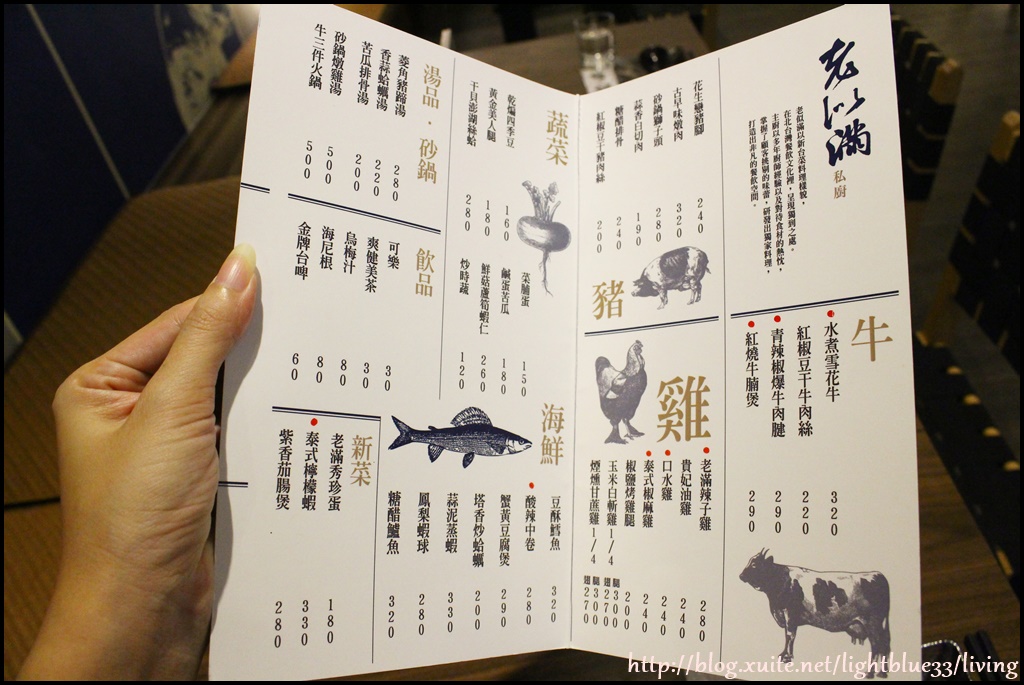 老以滿
私廚
老似滿以新台菜料理樣貌，
在北台灣餐飲文化裡，呈現獨到之處。
主廚以多年廚師經驗以及對待食材的熱忱，
掌握了顧客挑剔的味蕾，研發出獨家料理，
打造出非凡的餐飲空間。
牛
水煮雪花牛 320
紅椒豆干牛肉絲 220
青辣椒爆牛肉腱 290
紅燒牛腩煲 290
花生戀豬腳 240
古早味燉肉 320
砂鍋獅子頭 280
蒜香白切肉 190
糖醋排骨 240
紅椒豆干豬肉絲 200
豬
雞
老滿辣子雞 280
貴妃油雞 240
口水雞 240
泰式椒麻雞 240
椒鹽烤雞腿 200
玉米白斬雞1/4 腿300 翅270
煙燻甘蔗雞1/4 腿300 翅270
蔬菜
乾煸四季豆 160
黃金美人腿 180
干貝澎湖絲蛤 280
菜脯蛋 150
鹹蛋苦瓜 180
鮮菇蘆筍蝦仁 260
炒時蔬 120
海鮮
豆酥鱈魚 320
酸辣中卷 280
蟹黃豆腐煲 290
塔香炒蛤蠣 200
蒜泥蒸蝦 330
鳳梨蝦球 280
糖醋鱸魚 320
湯品．砂鍋
菱角豬蹄湯 280
香蒜蛤蠣湯 220
苦瓜排骨湯 200
砂鍋燉雞湯 500
牛三件火鍋 500
飲品
可樂 30
爽健美茶 30
烏梅汁 80
海尼根 80
金牌台啤 60
新菜
老滿秀珍蛋 180
泰式檸檬蝦 330
紫香茄腸煲 280
http://blog.xuite.net/lightblue33/living